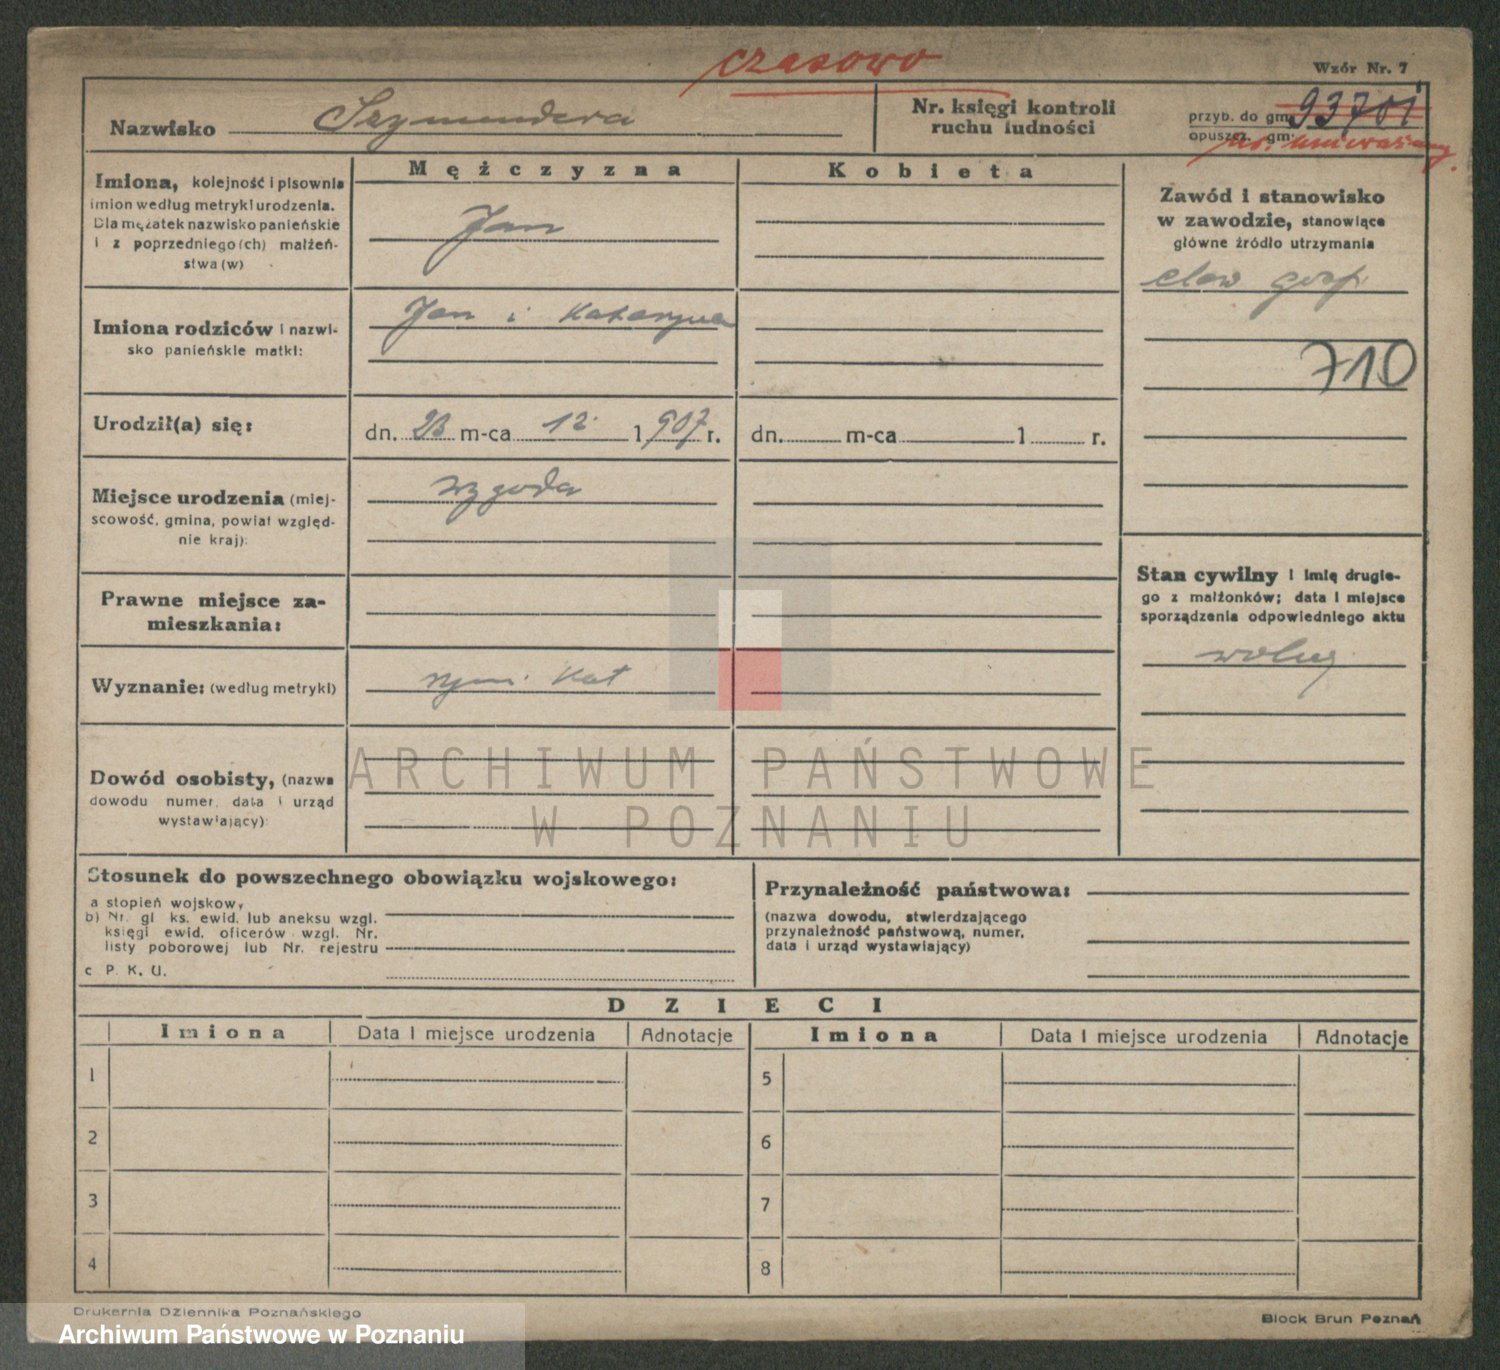 czasowo
Wzór Nr. 7
Nazwisko Szymendera
Nr. księgi kontroli
ruchu ludności
przyb. do gm. 93701
opuszcz. gm:
nr. unieważniony.
Mężczyzna
Kobieta
Imiona, kolejność i pisownia
imion według metryki urodzenia.
Dla mężatek nazwisko panieńskie
i z poprzedniego(ch) małżeń-
stwa(w)
Jan
Zawód i stanowisko
w zawodzie, stanowiące
główne źródło utrzymania
710
Imiona rodziców i nazwi-
sko panieńskie matki:
Jan i Katarzyna
Urodził(a) się:
dn. 23 m-ca 12. 1907 r.
dn. m-ca 1 r.
Miejsce urodzenia (miej-
scowość, gmina, powiat względ-
nie kraj):
Wygoda
Prawne miejsce za-
mieszkania:
Stan cywilny i imię drugie-
go z małżonków; data i miejsce
sporządzenia odpowiedniego aktu
wolny
Wyznanie: (według metryki)
rzym. kat
Dowód osobisty, (nazwa
dowodu numer, data i urząd
wystawiający):
ARCHIWUM PAŃSTWOWE
W POZNANIU
Stosunek do powszechnego obowiązku wojskowego:
a stopień wojskowy
b) Nr. gl ks. ewid. lub aneksu wzgl.
księgi ewid. oficerów wzgl. Nr.
listy poborowej lub Nr. rejestru
c P. K. U.
Przynależność państwowa:
(nazwa dowodu, stwierdzającego
przynależność państwową, numer,
data i urząd wystawiający)
DZIECI
Imiona Data i miejsce urodzenia Adnotacje Imiona Data i miejsce urodzenia Adnotacje
1 5
2 6
3 7
4 8
Drukarnia Dziennika Poznańskiego
Block Brun Poznań
Archiwum Państwowe w Poznaniu